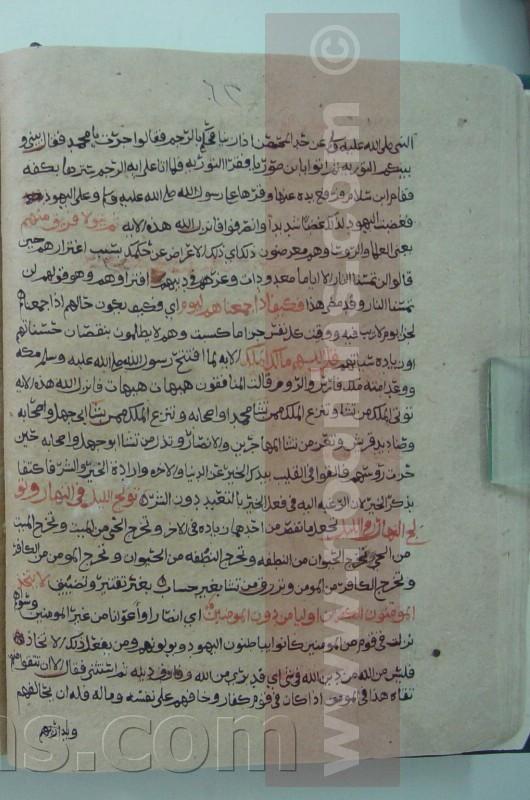 ٦٣
النبي صلى الله عليه وسلم عن حد المحصن اذا زنا فحكم بالرجم فقالوا جرت يا محمد فقال بيني و
بينكم التورية ثم اتوا بابن صوريا وقرا التورية فلما اتا على اية الرجم سترها بكفه
فقام ابن سلام ورفع يده عنها وقراها على رسول الله صلى الله عليه وسلم وعلى اليهود
فغضبت اليهود لذلك غضبا شديدا وانصرفوا فانزل الله هذه الاية ثم يتولا فريق منهم
يعني العلما والروسا وهم معرضون ذلك اي ذلك الاعراض عن حكمك بسبب اغترارهم حين
قالوا لن تمسنا النار الا اياما معدودات وغرهم في دينهم افتراوهم وهو قولهم لن
تمسنا النار وقد مضى هذا فكيف اذا جمعناهم ليوم اي وكيف يكون حالهم اذا جمعناهم
لجزا يوم لا ريب فيه ووفيت كل نفس جزا ما كسبت وهم لا يظلمون بنقصان حسناتهم
او زيادة سياتهم قل اللهم مالك الملك الاية لما افتتح رسول الله صلى الله عليه وسلم مكه
ووعد امته ملك فارس والروم قالت المنافقون هيهات هيهات فانزل الله هذه الاية
توتي الملك من تشا محمد او اصحابه وتنزع الملك ممن تشا ابي جهل واصحابه
وصناديد قريش وتعز من تشا المهاجرين والانصار وتذل من تشا ابو جهل واصحابه حين
حزت روسهم فالقوا في القليب بيدك الخير عز الدنيا والاخره واراده الخير والشر فاكتفا
بذكر الخير لان الرغبه اليه في فعل الخير بالعبد دون الشر تولج الليل في النهار وتو
لج النهار في الليل تجعل ما نقص من احدهما زياده في الاخر وتخرج الحي من الميت وتخرج الميت
من الحي تخرج الحيوان من النطفه وتخرج النطفه من الحيوان وتخرج المومن من الكافر
وتخرج الكافر من المومن وترزق من تشا بغير حساب بغير تقتير وتضييق لا يتخذ
المومنون الكافرين اوليا من دون المومنين اي انصارا واعوانا من غير المومنين
نزلت في قوم من المومنين كانوا يباطنون اليهود ويولونهم ومن يفعل ذلك الاتخاذ
فليس من الله من دين الله في شي اي قد بري من الله وفارق دينه ثم استثنى فقال الا ان تتقوا منهم
تقاه هذا في المومن اذا كان في قوم كفار وخافهم على نفسه وماله فله ان يخالفهم
ويداريهم